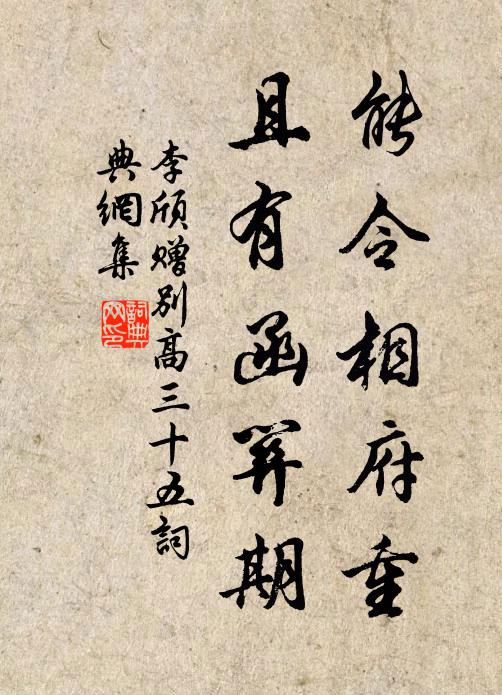 能令相府重
且有函關期
李頎贈別高三十五詞
典網集
詞典网印